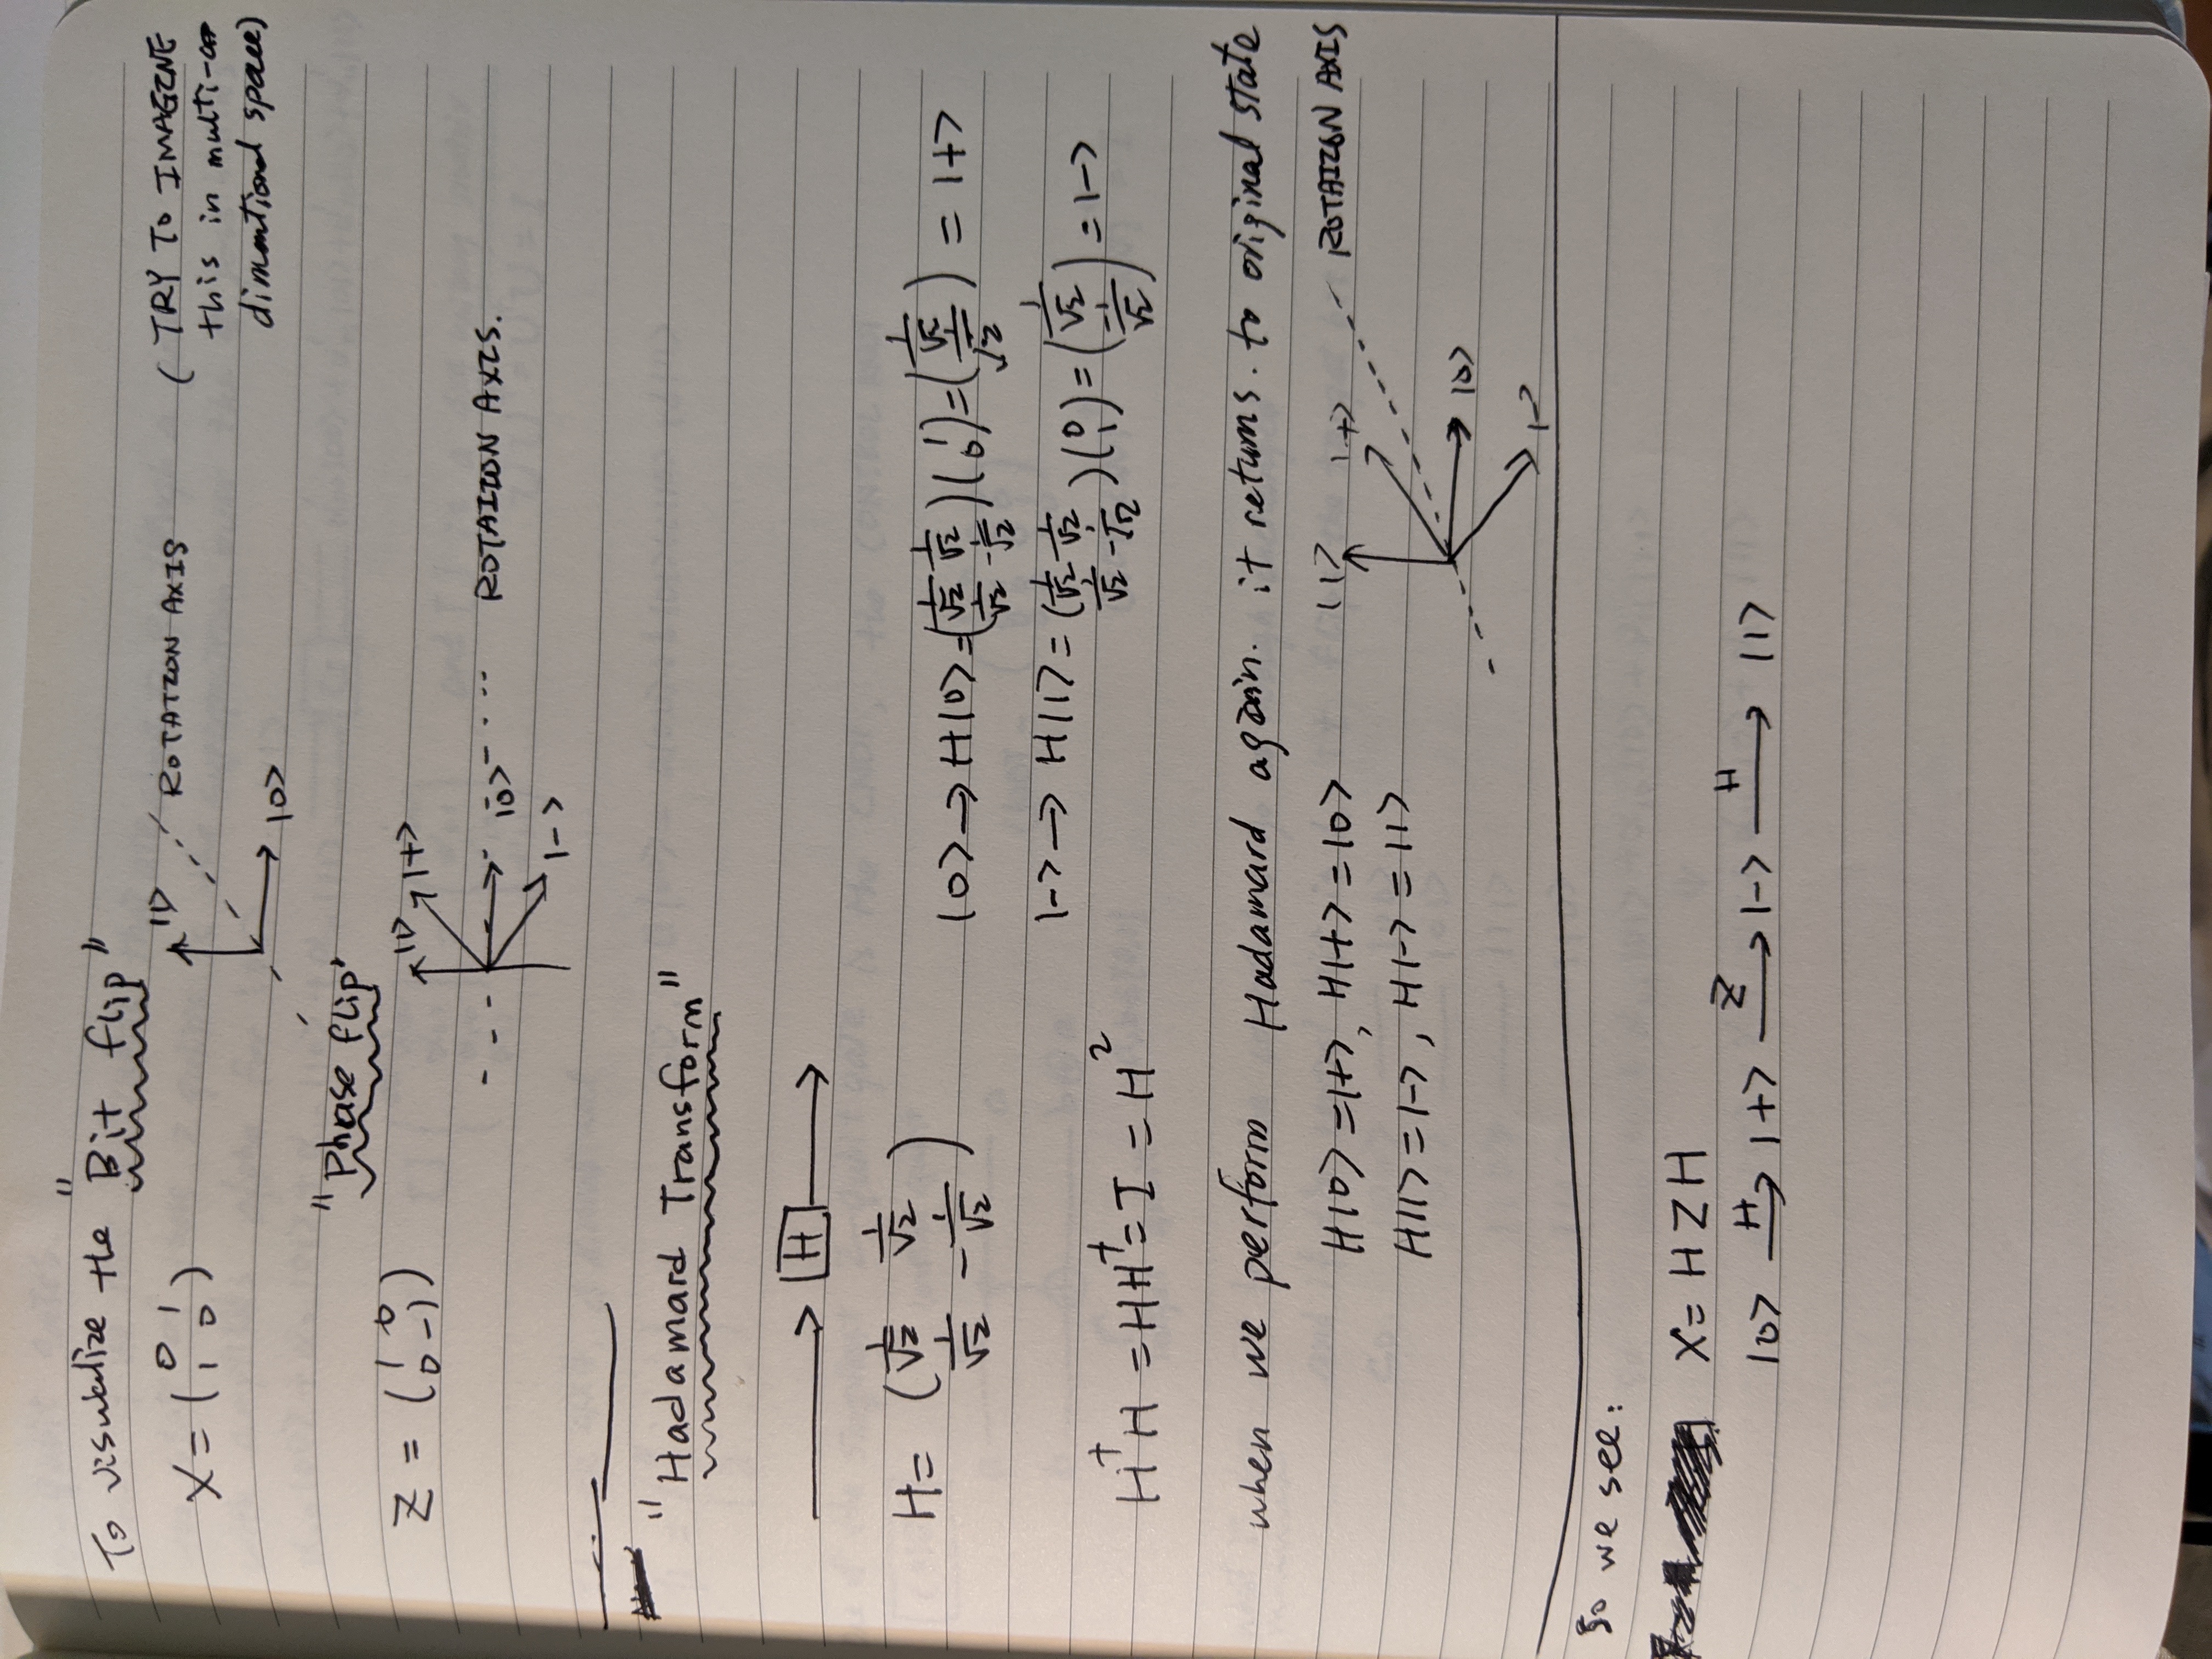 To visualize the "Bit flip"
X = ( 0 1
1 0 )
|1>
ROTATION AXIS
|0>
( TRY TO IMAGINE
this in multi-
dimentional space)
"Phase flip"
Z = ( 1 0
0 -1 )
|1>
|+>
|0>
ROTATION AXIS.
|->
"Hadamard Transform"
H
H = ( 1/√2 1/√2
1/√2 -1/√2 )
|0> → H|0> = ( 1/√2 1/√2 1/√2 -1/√2 ) ( 1 0 ) = ( 1/√2 1/√2 ) = |+>
|-> → H|1> = ( 1/√2 1/√2 1/√2 -1/√2 ) ( 0 1 ) = ( 1/√2 -1/√2 ) = |->
H†H = HH† = I = H²
when we perform Hadamard again. it returns. to original state
H|0> = |+>, H|+> = |0>
H|1> = |->, H|-> = |1>
|1>
|+>
ROTATION AXIS
|0>
|->
So we see:
X = HZH
|0> H→ |+> Z→ |-> H→ |1>